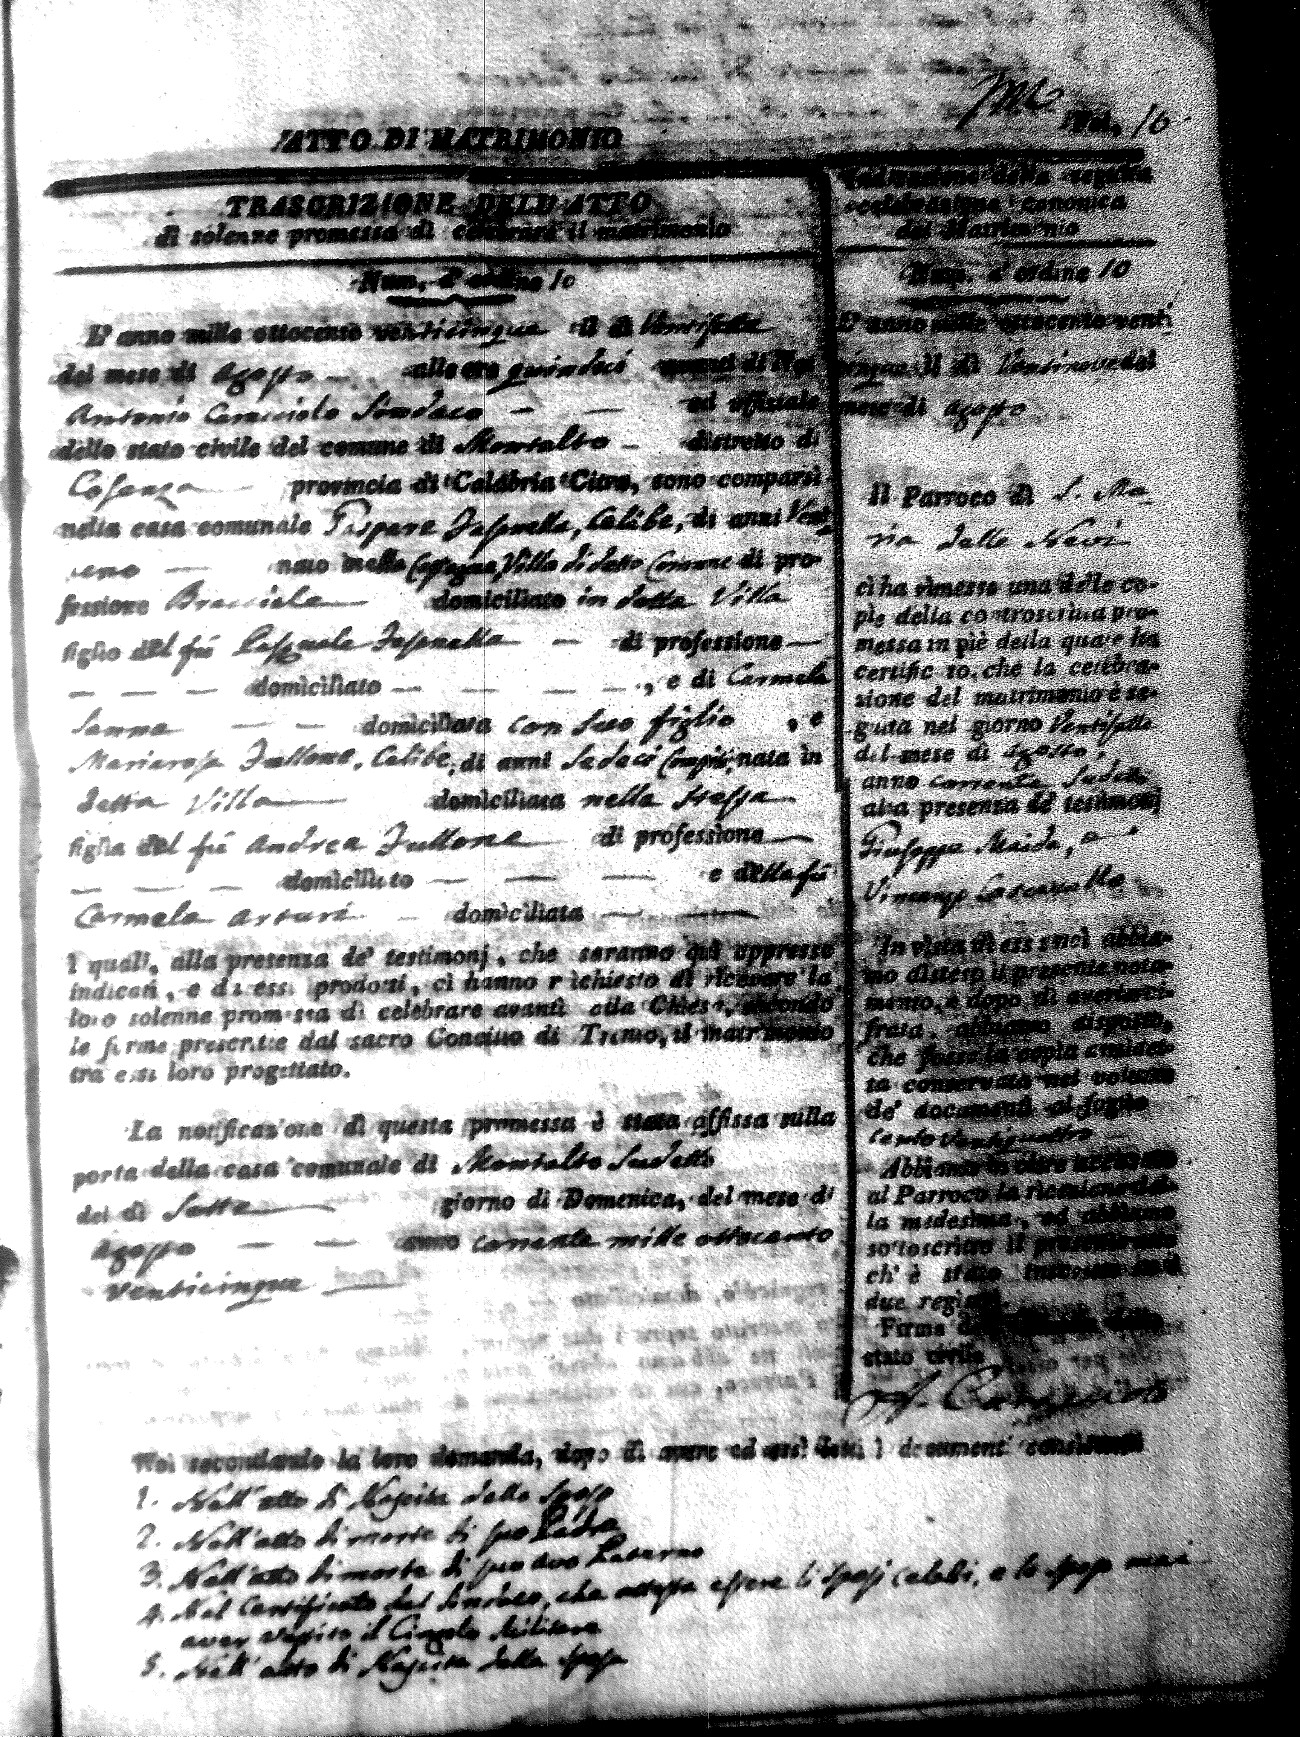 Fol. 10
ATTO DI MATRIMONIO
TRASCRIZIONE DELL'ATTO
di solenne promessa di celebrare il matrimonio
Num. d'ordine 10
L'anno mille ottocento venticinque il dì Ventisette
del mese di Agosto alle ore quindici avanti di Noi
Antonio Caracciolo Sindaco — — ed uffiziale
dello stato civile del comune di Montalto — distretto di
Cosenza — provincia di Calabria Citra, sono comparsi
nella casa comunale Gaspare, Celibe, di anni Vent
uno — nato nella Villa di detto Comune di pro-
fessione Bracciale — domiciliato in detta Villa
figlio del fù Pasquale — di professione —
— — — domiciliato — — — —, e di Carmela
Sanna — — domiciliata con suo figlio, e
Mariarosa Fullone, Celibe, di anni Sedeci Compiti, nata in
detta Villa — domiciliata nella stessa
figlia del fù Andrea Fullone di professione —
— — — domiciliato — — — e della fù
Carmela Arturi — domiciliata — —
i quali, alla presenza de' testimonj, che saranno quì appresso
indicati, e da essi prodotti, ci hanno richiesto di ricevere la
loro solenne promessa di celebrare avanti alla Chiesa, secondo
le forme prescritte dal sacro Concilio di Trento, il matrimonio
tra essi loro progettato.
La notificazione di questa promessa è stata affissa sulla
porta della casa comunale di Montalto sudetto
dei dì Sette — giorno di Domenica, del mese di
Agosto — — anno corrente mille ottocento
Venticinque —
Indicazione della seguita
celebrazione canonica
del Matrimonio
Num. d'ordine 10
L'anno mille ottocento venti
cinque il dì Ventinove del
mese di Agosto
Il Parroco di S. Ma
ria delle Nevi
ci ha rimesso una delle co-
pie della controscritta pro-
messa in piè della quale ha
certificato, che la celebra-
zione del matrimonio è se-
guita nel giorno Ventisette
del mese di Agosto,
anno corrente sudetto
alla presenza de' testimonj
Giuseppe Maida, e
Vincenzo
In vista di essa noi abbia-
mo disteso il presente nota-
mento, e dopo di averla ci-
frata, abbiamo disposto,
che fosse la copia anzidet-
ta conservata nel volume
de' documenti al foglio
cento Ventiquattro —
Abbiamo in oltre accusato
al Parroco la ricezione del-
la medesima, ed abbiamo
sottoscritto il presente atto
ch' è stato inscritto su i
due registri.
Firma dell'
stato civile
A. Caracciolo
Noi secondando la loro domanda, dopo di avere ad essi letti i documenti consistenti
1. Nell'atto di Nascita dello Sposo
2. Nell'atto di morte di suo Padre
3. Nell'atto di morte di suo avo Paterno
4. Nel Certificato del Sindaco, che attesta essere li sposi celibi, e lo sposo mai
aver vestito il Cingolo Militare
5. Nell'atto di Nascita della sposa